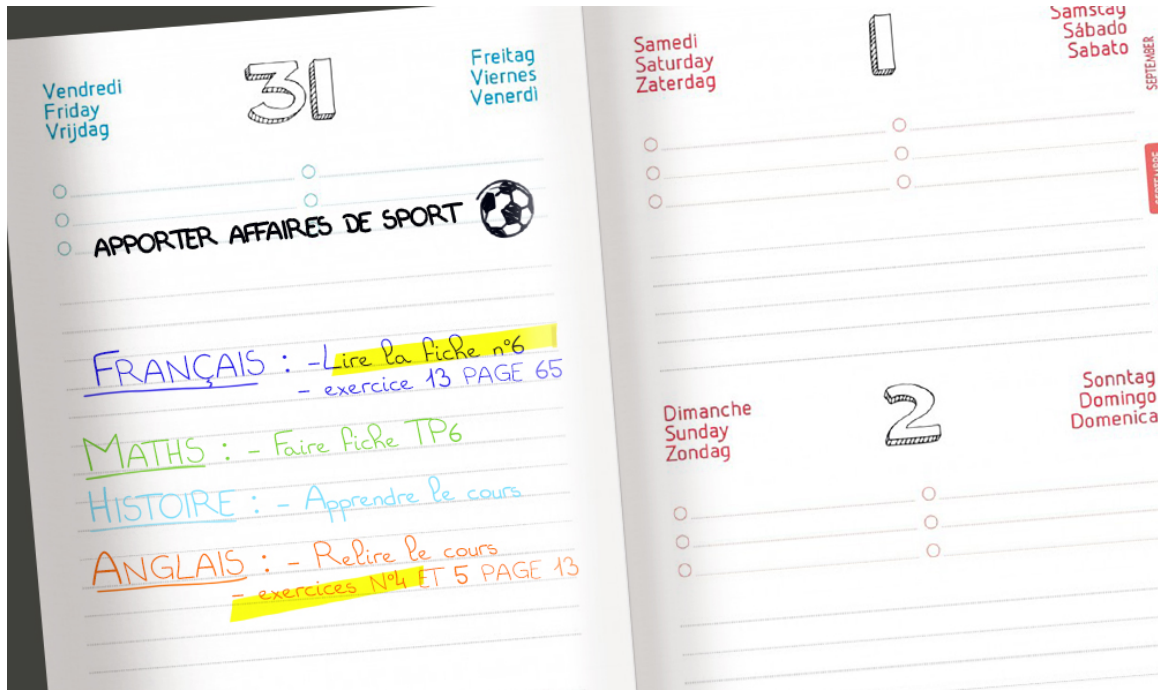 Vendredi
Friday
Vrijdag
31
Freitag
Viernes
Venerdì
APPORTER AFFAIRES DE SPORT
FRANÇAIS : - Lire la fiche n°6
- exercice 13 PAGE 65
MATHS : - Faire fiche TP6
HISTOIRE : - Apprendre le cours
ANGLAIS : - Relire le cours
- exercices N°4 ET 5 PAGE 13
Samedi
Saturday
Zaterdag
1
Samstag
Sábado
Sabato
SEPTEMBER
SEPTEMBRE
Dimanche
Sunday
Zondag
2
Sonntag
Domingo
Domenica